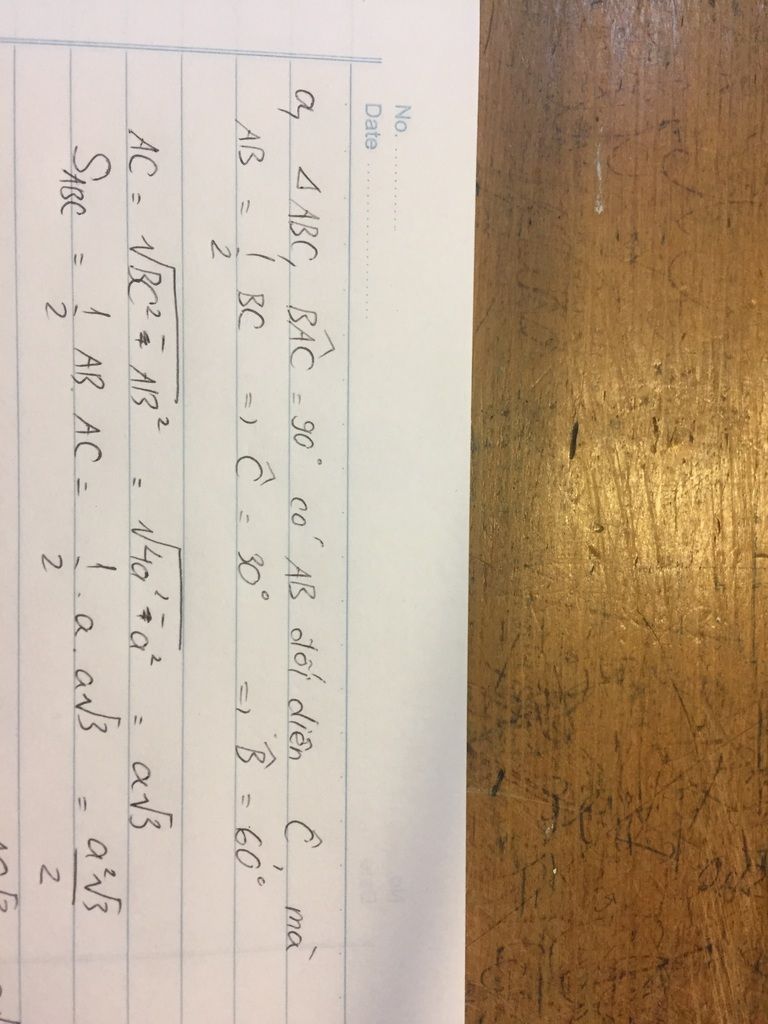 No. ............
Date ......................
a, Δ ABC, BÂC = 90° có AB đối diên Ĉ mà
AB = 1/2 BC => Ĉ = 30° => B̂ = 60°
AC = √(BC² - AB²) = √(4a² - a²) = a√3
S_ABC = 1/2 AB. AC = 1/2 . a. a√3 = a²√3/2